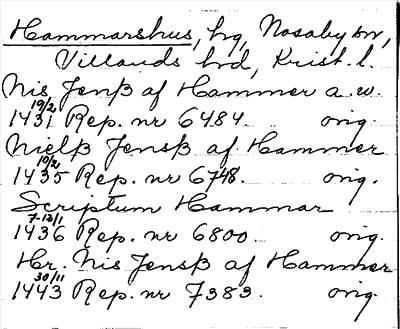 Hammarshus, hg, Nosaby sn,
Villands hd, Krist. l.
Nis Jenß af Hammer a.w.
19/2
1431 Rep. nr 6484. orig.
Nielß Jensß af Hammer
10/2
1435 Rep. nr 6748. orig.
Scriptum Hammar
7-12/1
1436 Rep. nr 6800. orig.
Hr. Nis Jensß af Hammer
30/11
1443 Rep. nr 7383. orig.